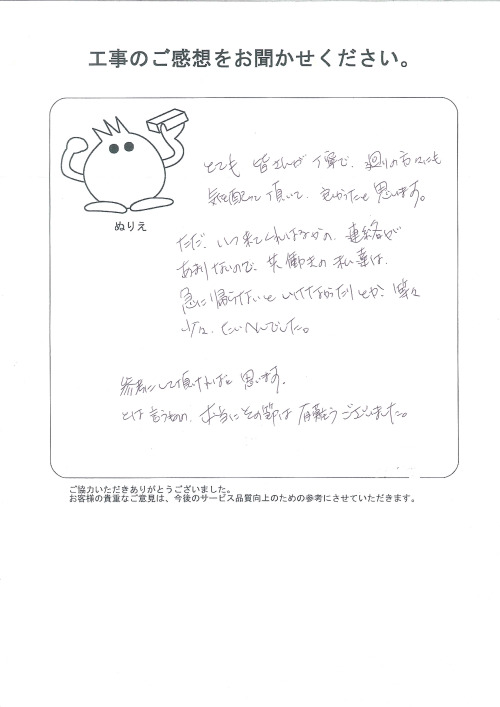 工事のご感想をお聞かせください。
ぬりえ
とても 皆さんが 丁寧で、廻りの方々にも
気を配って頂いて、良かったと思います。
ただ、いつ来てくれはるかの、連絡が
あまりないので、共働きの私達は、
急に帰らないといけなかったりとか、等々
少々、たいへんでした。
参考にして頂ければと 思います。
とは言うものの、本当にその節は 有難うございました。
ご協力いただきありがとうございました。
お客様の貴重なご意見は、今後のサービス品質向上のための参考にさせていただきます。